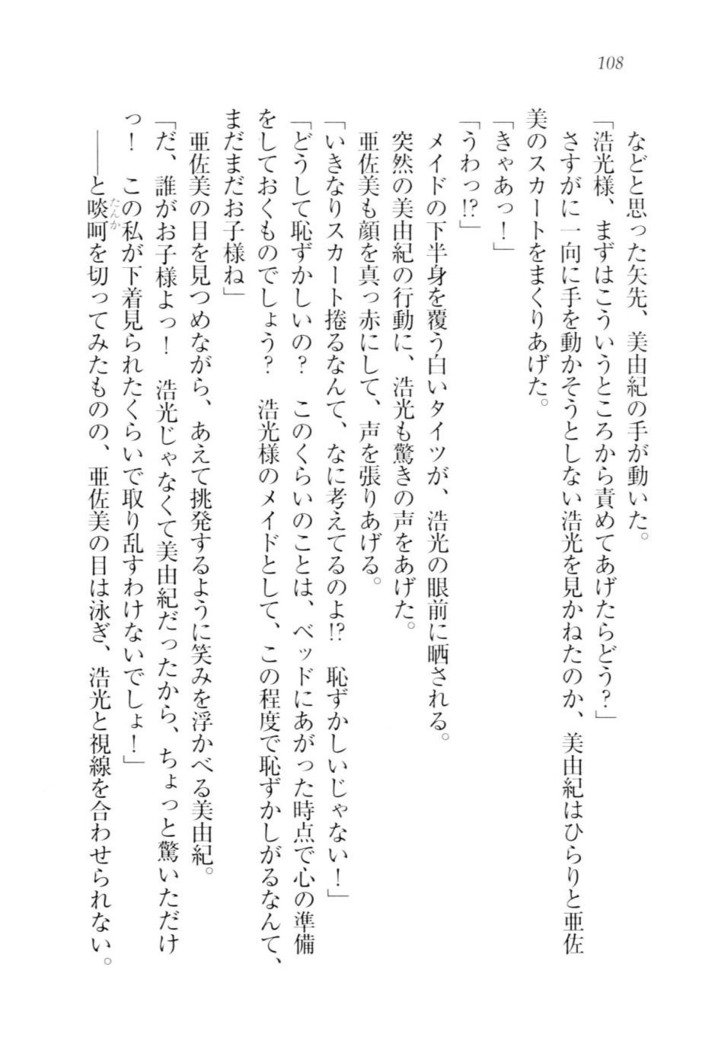 108
などと思った矢先、美由紀の手が動いた。
「浩光様、まずはこういうところから責めてあげたらどう？」
さすがに一向に手を動かそうとしない浩光を見かねたのか、美由紀はひらりと亜佐
美のスカートをまくりあげた。
「きゃあっ！」
「うわっ!?」
メイドの下半身を覆う白いタイツが、浩光の眼前に晒される。
突然の美由紀の行動に、浩光も驚きの声をあげた。
亜佐美も顔を真っ赤にして、声を張りあげる。
「いきなりスカート捲るなんて、なに考えてるのよ!?　恥ずかしいじゃない！」
「どうして恥ずかしいの？　このくらいのことは、ベッドにあがった時点で心の準備
をしておくものでしょう？　浩光様のメイドとして、この程度で恥ずかしがるなんて、
まだまだお子様ね」
亜佐美の目を見つめながら、あえて挑発するように笑みを浮かべる美由紀。
「だ、誰がお子様よっ！　浩光じゃなくて美由紀だったから、ちょっと驚いただけ
っ！　この私が下着見られたくらいで取り乱すわけないでしょ！」
――と啖呵たんかを切ってみたものの、亜佐美の目は泳ぎ、浩光と視線を合わせられない。